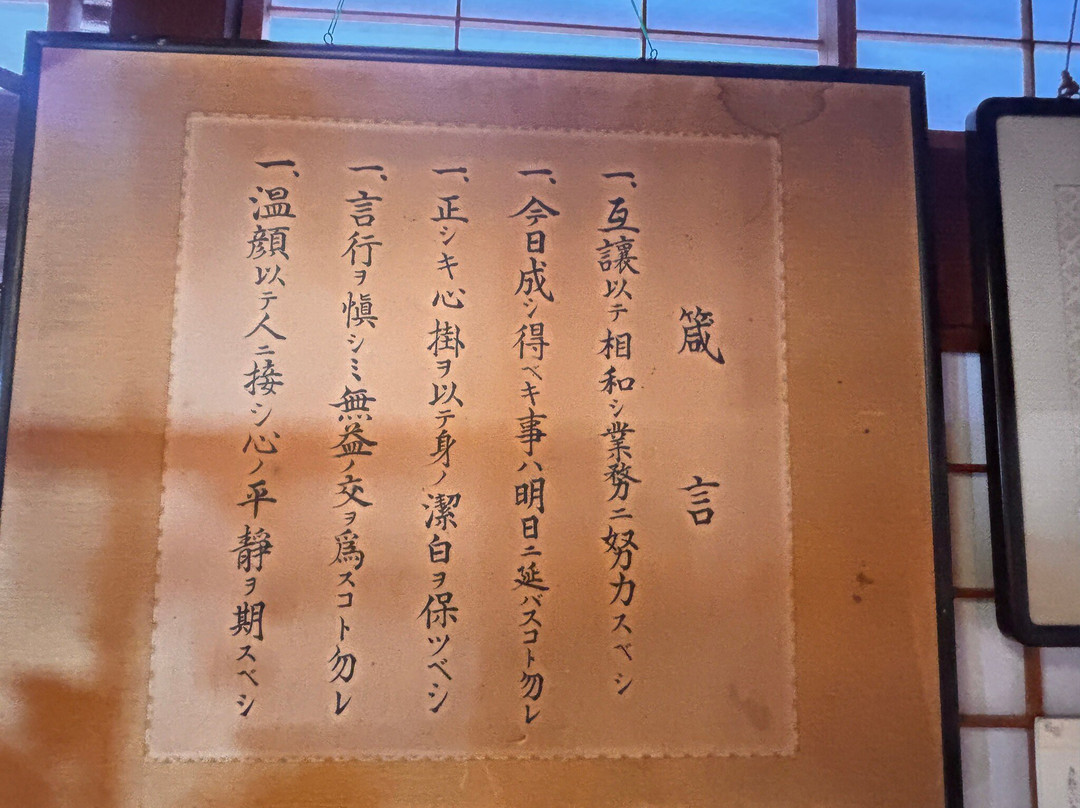 箴言
一、互讓以テ相和シ業務ニ努力スベシ
一、今日成シ得ベキ事ハ明日ニ延バスコト勿レ
一、正シキ心掛ヲ以テ身ノ潔白ヲ保ツベシ
一、言行ヲ愼シミ無益ノ交ヲ爲スコト勿レ
一、溫顔以テ人ニ接シ心ノ平靜ヲ期スベシ